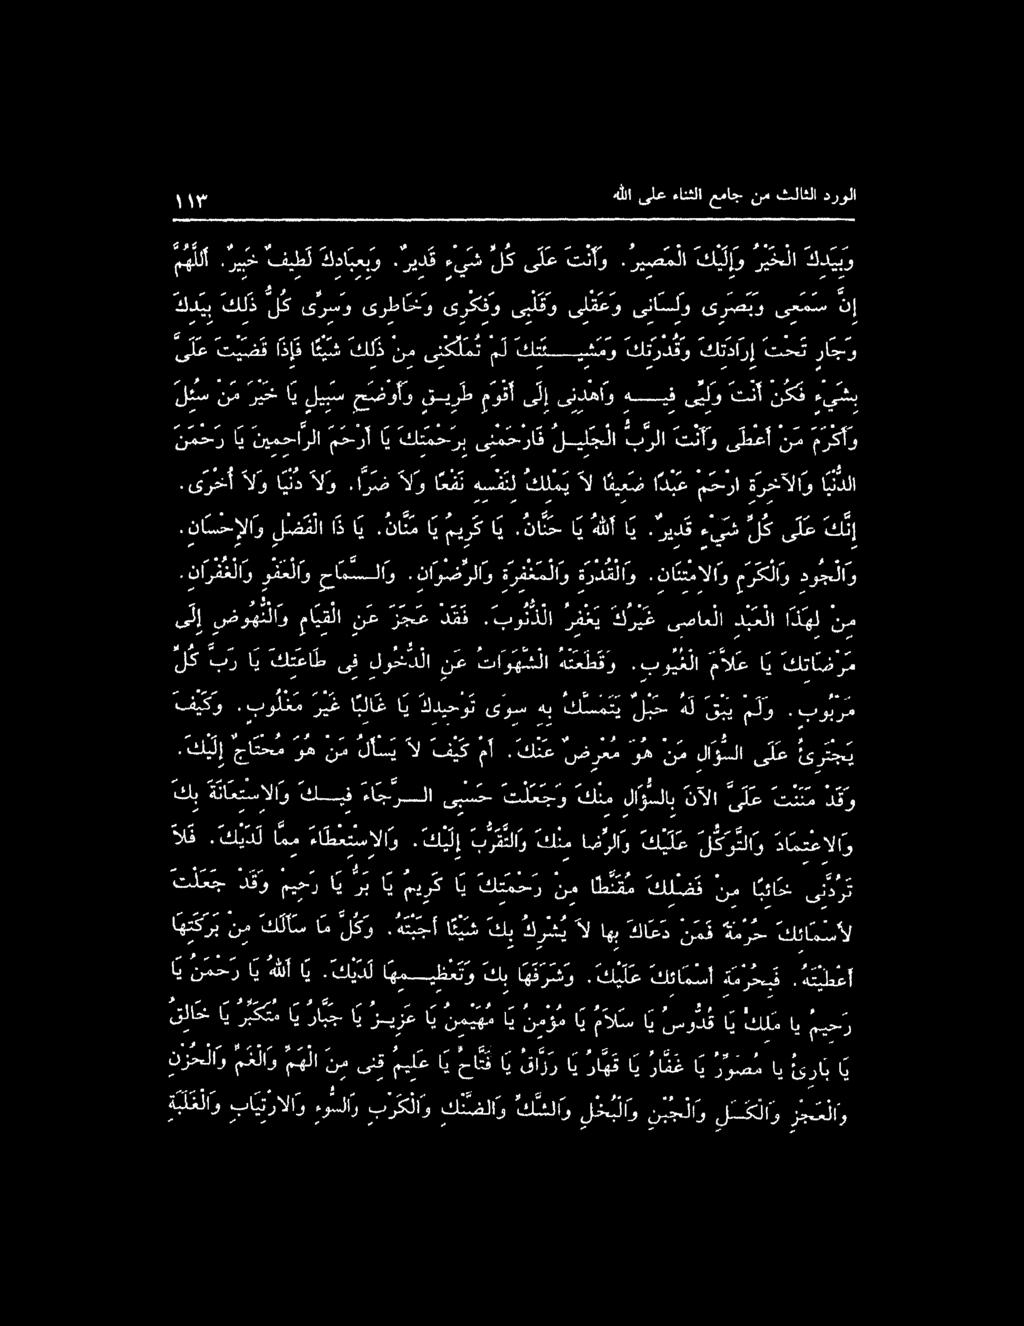 الورد الثالث من جامع الثناء على الله ١١٣
وَبِيَدِكَ الْخَيْرُ وَإِلَيْكَ الْمَصِيرُ. وَأَنْتَ عَلَى كُلِّ شَيْءٍ قَدِيرٌ. وَبِعِبَادِكَ لَطِيفٌ خَبِيرٌ. أَللَّهُمَّ
إِنَّ سَمَعِى وَبَصَرِى وَلِسَانِى وَعَقْلِى وَقَلْبِى وَفِكْرِى وَخَاطِرِى وَسِرِّى كُلُّ ذَلِكَ بِيَدِكَ
وَجَارٍ تَحْتَ إِرَادَتِكَ وَقُدْرَتِكَ وَمَشِيــئَتِكَ لَمْ تُمَلِّكْنِى مِنْ ذَلِكَ شَيْئًا فَإِذَا قَضَيْتَ عَلَىَّ
بِشَيْءٍ فَكُنْ أَنْتَ وَلِيِّى فِيــهِ وَاهْدِنِى إِلَى أَقْوَمِ طَرِيــقٍ وَأَوْضَحِ سَبِيلٍ يَا خَيْرَ مَنْ سُئِلَ
وَأَكْرَمَ مَنْ أَعْطَى وَأَنْتَ الرَّبُّ الْجَلِيــلُ فَارْحَمْنِى بِرَحْمَتِكَ يَا أَرْحَمَ الرَّاحِمِينَ يَا رَحْمَنَ
الدُّنْيَا وَالآخِرَةِ ارْحَمْ عَبْدًا ضَعِيفًا لاَ يَمْلِكُ لِنَفْسِهِ نَفْعًا وَلاَ ضَرًّا. وَلاَ دُنْيَا وَلاَ أُخْرَى.
إِنَّكَ عَلَى كُلِّ شَيْءٍ قَدِيرٌ. يَا أَللهُ يَا حَنَّانُ. يَا كَرِيمُ يَا مَنَّانُ. يَا ذَا الْفَضْلِ وَالإِحْسَانِ.
وَالْجُودِ وَالْكَرَمِ وَالاِمْتِنَانِ. وَالْقُدْرَةِ وَالْمَغْفِرَةِ وَالرِّضْوَانِ. وَالــسَّمَاحِ وَالْعَفْوِ وَالْغُفْرَانِ.
مِنْ لِهَذَا الْعَبْدِ الْعَاصِى غَيْرُكَ يَغْفِرُ الذُّنُوبَ. فَقَدْ عَجَزَ عَنِ الْقِيَامِ وَالنُّهُوضِ إِلَى
مَرْضَاتِكَ يَا عَلاَّمَ الْغُيُوبِ. وَقَطَعَتْهُ الشَّهَوَاتُ عَنِ الدُّخُولِ فِى طَاعَتِكَ يَا رَبَّ كُلِّ
مَرْبُوبٍ. وَلَمْ يَبْقَ لَهُ حَبْلٌ يَتَمَسَّكُ بِهِ سِوَى تَوْحِيدِكَ يَا غَالِبًا غَيْرَ مَغْلُوبٍ. وَكَيْفَ
يَجْتَرِئُ عَلَى السُّؤَالِ مَنْ هُوَ مُعْرِضٌ عَنْكَ. أَمْ كَيْفَ لاَ يَسْأَلُ مَنْ هُوَ مُحْتَاجٌ إِلَيْكَ.
وَقَدْ مَنَنْتَ عَلَىَّ الآنَ بِالسُّؤَالِ مِنْكَ وَجَعَلْتَ حَسْبِى الــرَّجَاءَ فِيــكَ وَالاِسْتِعَانَةَ بِكَ
وَالاِعْتِمَادَ وَالتَّوَكُّلَ عَلَيْكَ وَالرِّضَا مِنْكَ وَالتَّقَرُّبَ إِلَيْكَ. وَالاِسْتِعْطَاءَ مِمَّا لَدَيْكَ. فَلاَ
تَرُدَّنِى خَائِبًا مِنْ فَضْلِكَ مُقَنَّطًا مِنْ رَحْمَتِكَ يَا كَرِيمُ يَا بَرُّ يَا رَحِيمُ وَقَدْ جَعَلْتَ
لأَسْمَائِكَ حُرْمَةً فَمَنْ دَعَاكَ بِهَا لاَ يُشْرِكُ بِكَ شَيْئًا أَجَبْتَهُ. وَكُلَّ مَا سَأَلَكَ مِنْ بَرَكَتِهَا
أَعْطَيْتَهُ. فَبِحُرْمَةِ أَسْمَائِكَ عَلَيْكَ. وَشَرَفِهَا بِكَ وَتَعْظِيــمِهَا لَدَيْكَ. يَا أَللهُ يَا رَحْمَنُ يَا
رَحِيمُ يَا مَلِكُ يَا قُدُّوسُ يَا سَلاَمُ يَا مُؤْمِنُ يَا مُهَيْمِنُ يَا عَزِيــزُ يَا جَبَّارُ يَا مُتَكَبِّرُ يَا خَالِقُ
يَا بَارِئُ يَا مُصَوِّرُ يَا غَفَّارُ يَا قَهَّارُ يَا رَزَّاقُ يَا فَتَّاحُ يَا عَلِيمُ قِنِى مِنَ الْهَمِّ وَالْغَمِّ وَالْحُزْنِ
وَالْعَجْزِ وَالْكَسَلِ وَالْجُبْنِ وَالْبُخْلِ وَالشَّكِّ وَالضَّنْكِ وَالْكَرْبِ وَالسُّوءِ وَالاِرْتِيَابِ وَالْغَلَبَةِ